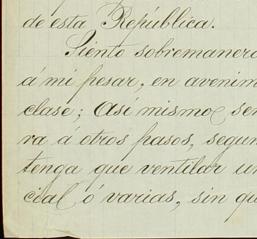 de esta República.
Siento sobremanera
á mi pesar, en avenim
clase; Así mismo sen
ra á otros pasos, segun
tenga que ventilar un
cial ó varias, sin qu